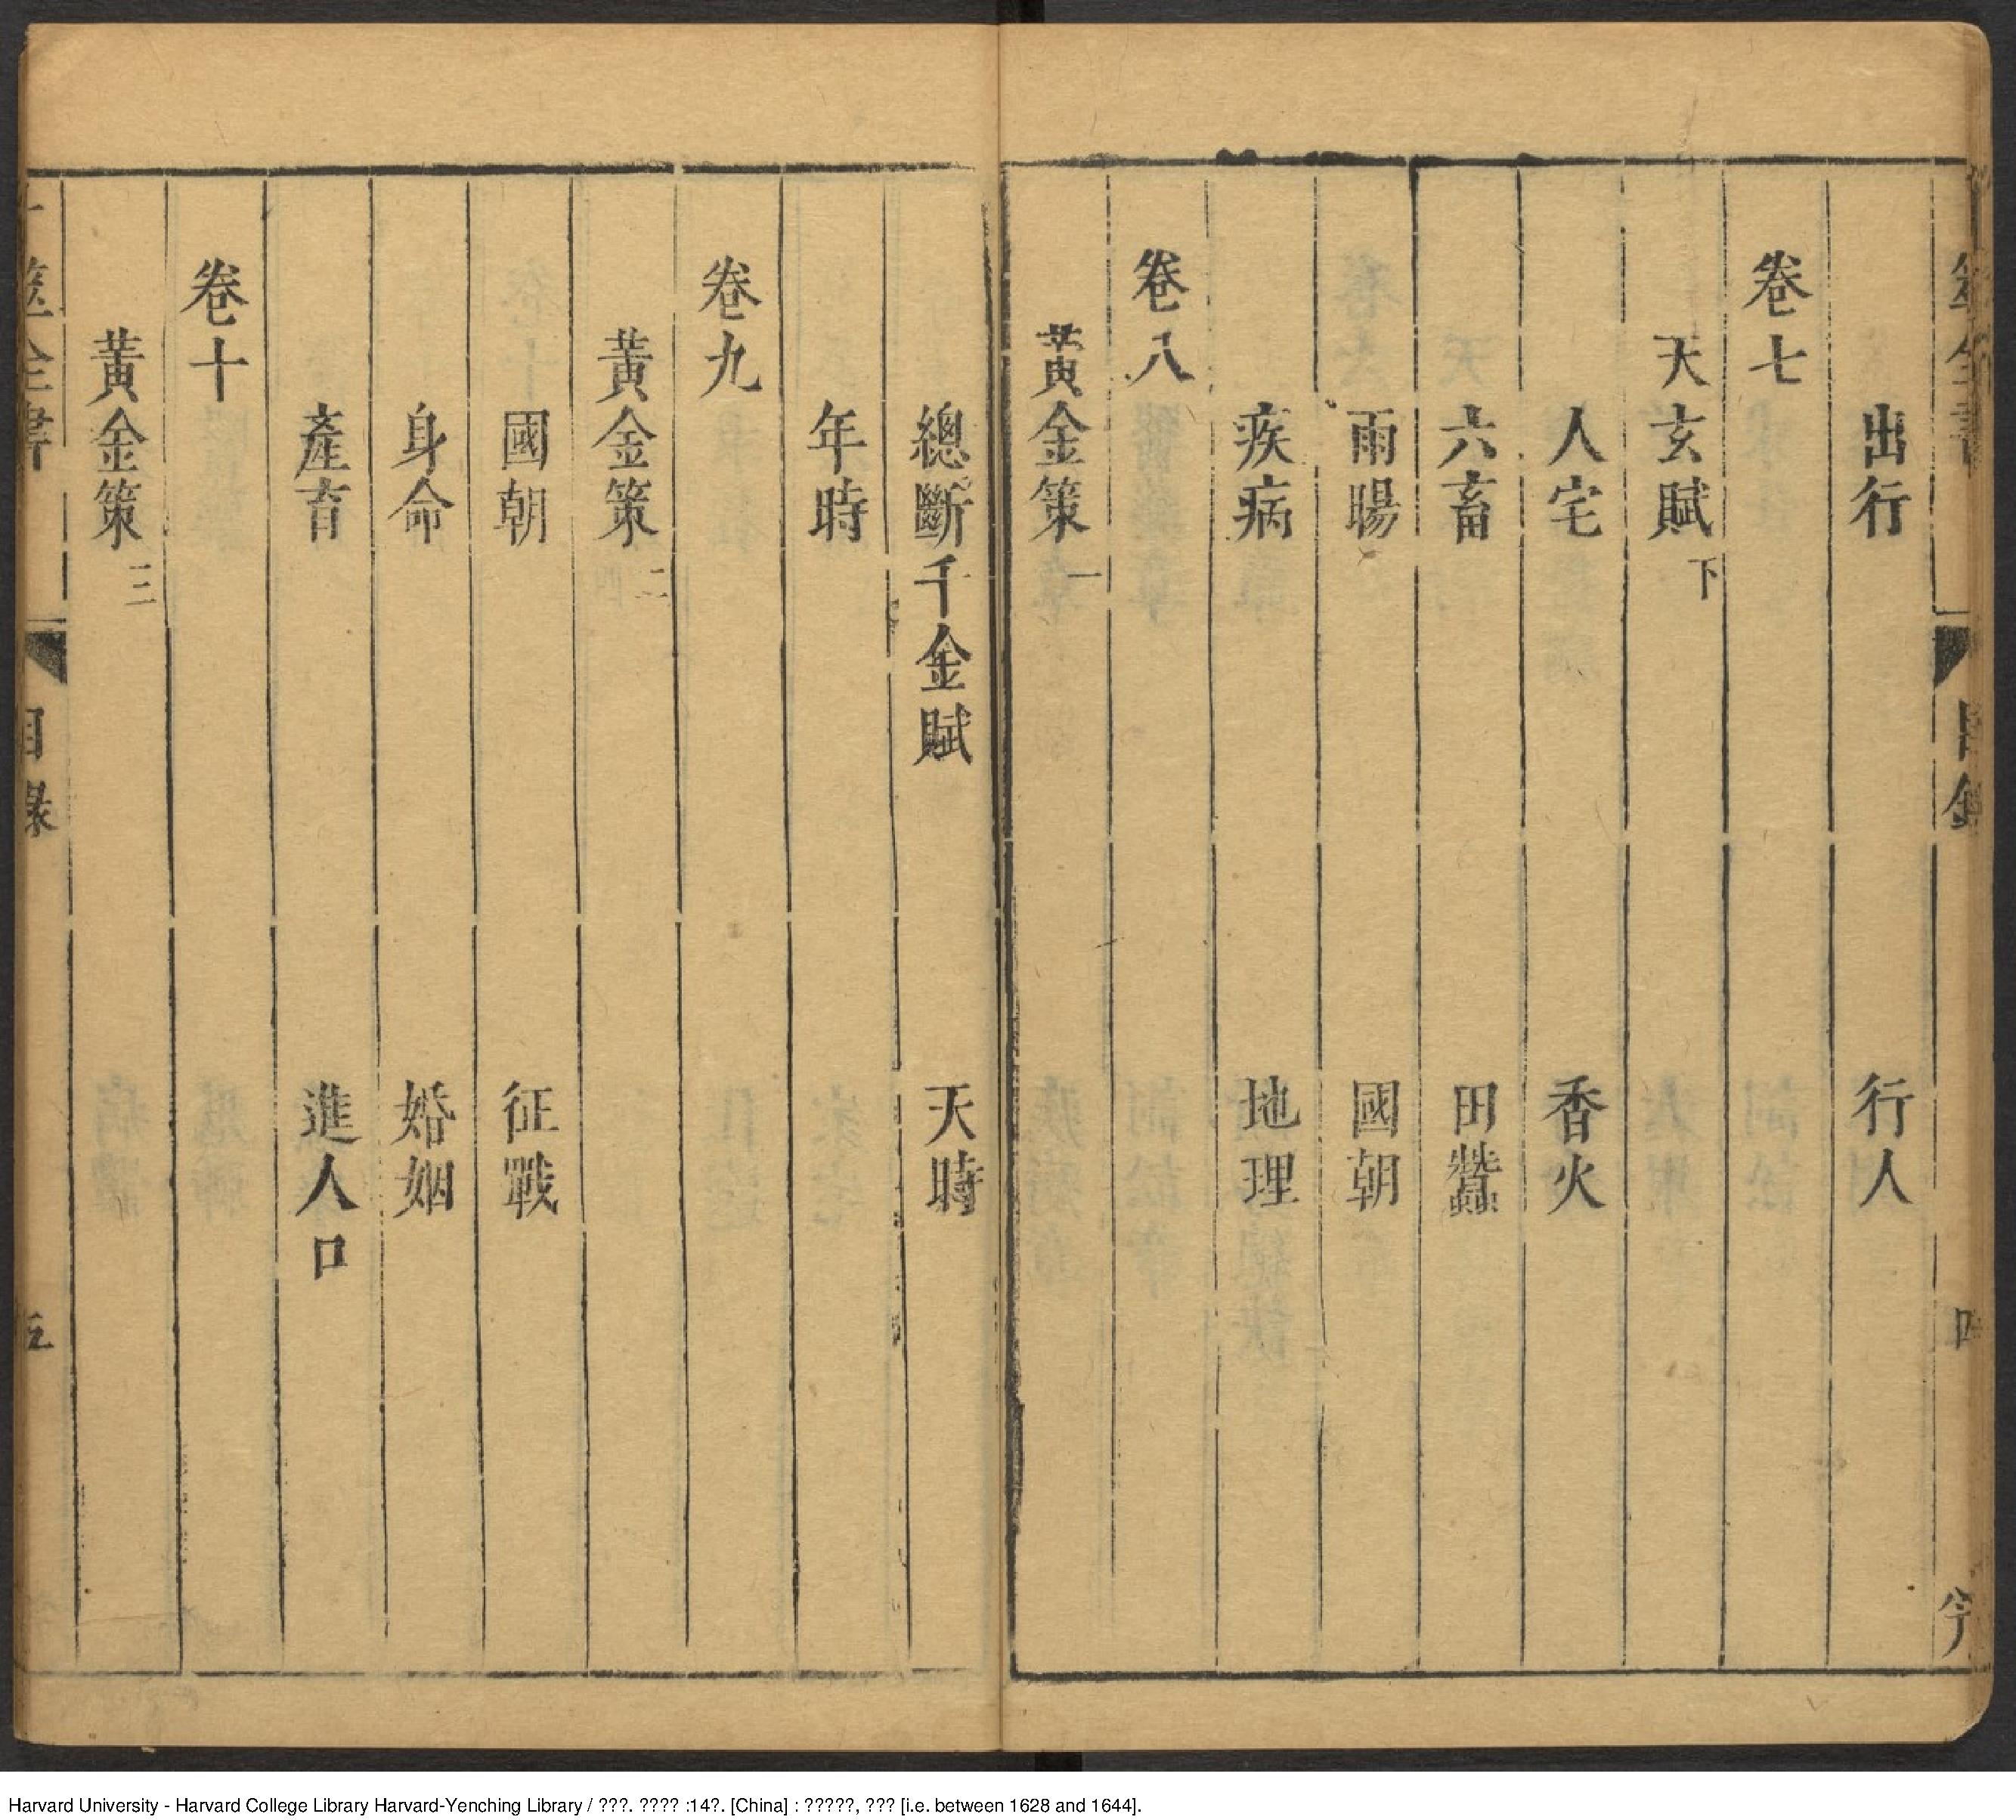 出行 行人
卷七
天玄賦 下
人宅 香火
六畜 田蠶
雨暘 國朝
疾病 地理
卷八
黃金策 一
總斷千金賦 天時
年時
卷九
黃金策 二
國朝 征戰
身命 婚姻
產育 進人口
卷十
黃金策 三
筮全書 目錄 五
Harvard University - Harvard College Library Harvard-Yenching Library / ???. ???? :14?. [China] : ?????, ??? [i.e. between 1628 and 1644].